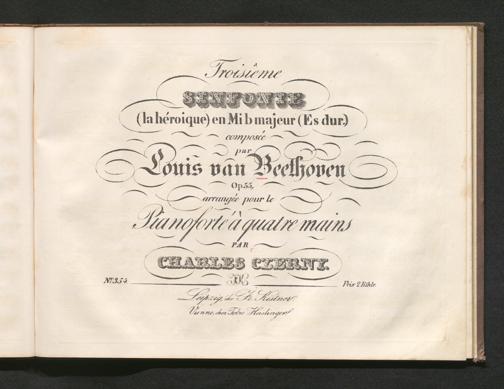 Troisième
SINFONIE
(la héroique) en Mi b majeur (Es dur.)
composée
par
Louis van Beethoven
Op. 55.
arrangée pour le
Pianoforte à quatre mains
PAR
CHARLES CZERNY.
No. 354.
Prix 2 Rthlr.
Leipzig, chez Fr. Kistner.
Vienne, chez Tobie Haslinger.